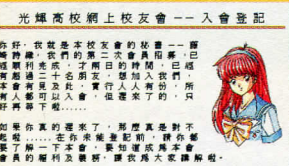 光輝高校網上校友會 －－ 入會登記
你好，我就是本校友會的秘書－－藤
崎詩織，我們的第二次會員招募，已
經順利完成，才兩日的時間，已經
有超過二十名朋友，想加入我們，
本會有見及此，實行人人有份，所
有人都可以入會，但遲來了的，只
好再等下啦......
如果你真的遲來了，那麼真是對不
起啦....，在你未能登記前，請你都
要了解一下本會，要知道成爲本會
會員的福利及裝務，讓我爲大家講解啦。